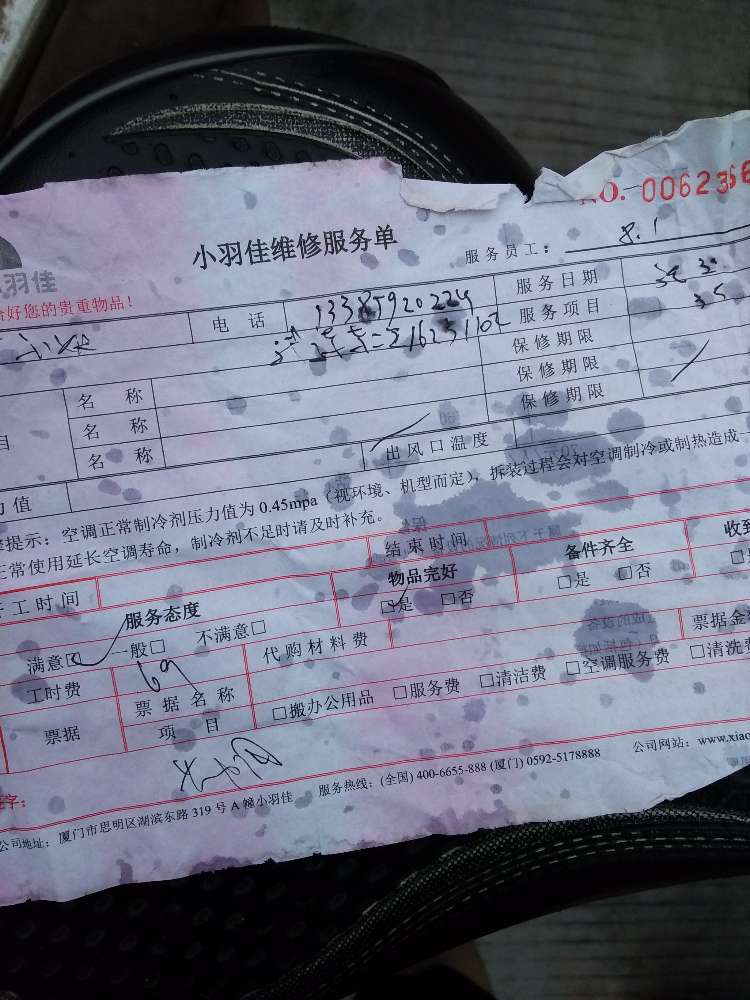 NO. 006236
小羽佳维修服务单
服务员工：
羽佳
好您的贵重物品！
电 话 13385920224 服务日期 8.1
=516231102 服务项目
名 称 保修期限
名 称 保修期限
名 称 保修期限
力值 出风口温度
提示：空调正常制冷剂压力值为 0.45mpa（视环境、机型而定），拆装过程会对空调制冷或制热造成
正常使用延长空调寿命，制冷剂不足时请及时补充。
工时间 结束时间
服务态度 物品完好 备件齐全 收到
满意☑ 一般□ 不满意□ ☑是 □否 □是 □否 □
工时费 69 代购材料费
票据 票据名称 票据金
项 目 □搬办公用品 □服务费 □清洁费 □空调服务费 □清洗费
字：
公司地址：厦门市思明区湖滨东路 319 号 A 幢小羽佳 服务热线：(全国) 400-6655-888 (厦门) 0592-5178888 公司网站：www.xiao